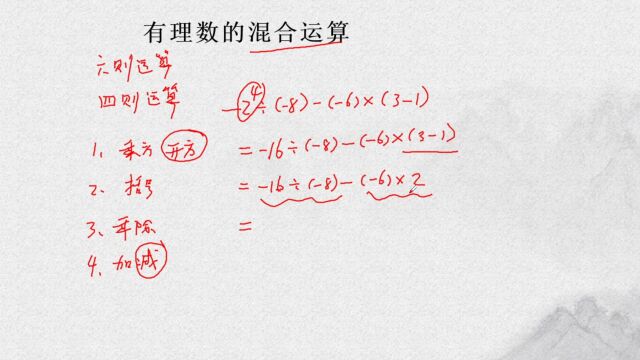 有理数的混合运算
六则运算
四则运算
-2⁴÷(-8)-(-6)×(3-1)
1、乘方 开方
=-16÷(-8)-(-6)×(3-1)
2、括号
=-16÷(-8)-(-6)×2
3、乘除
=
4、加减